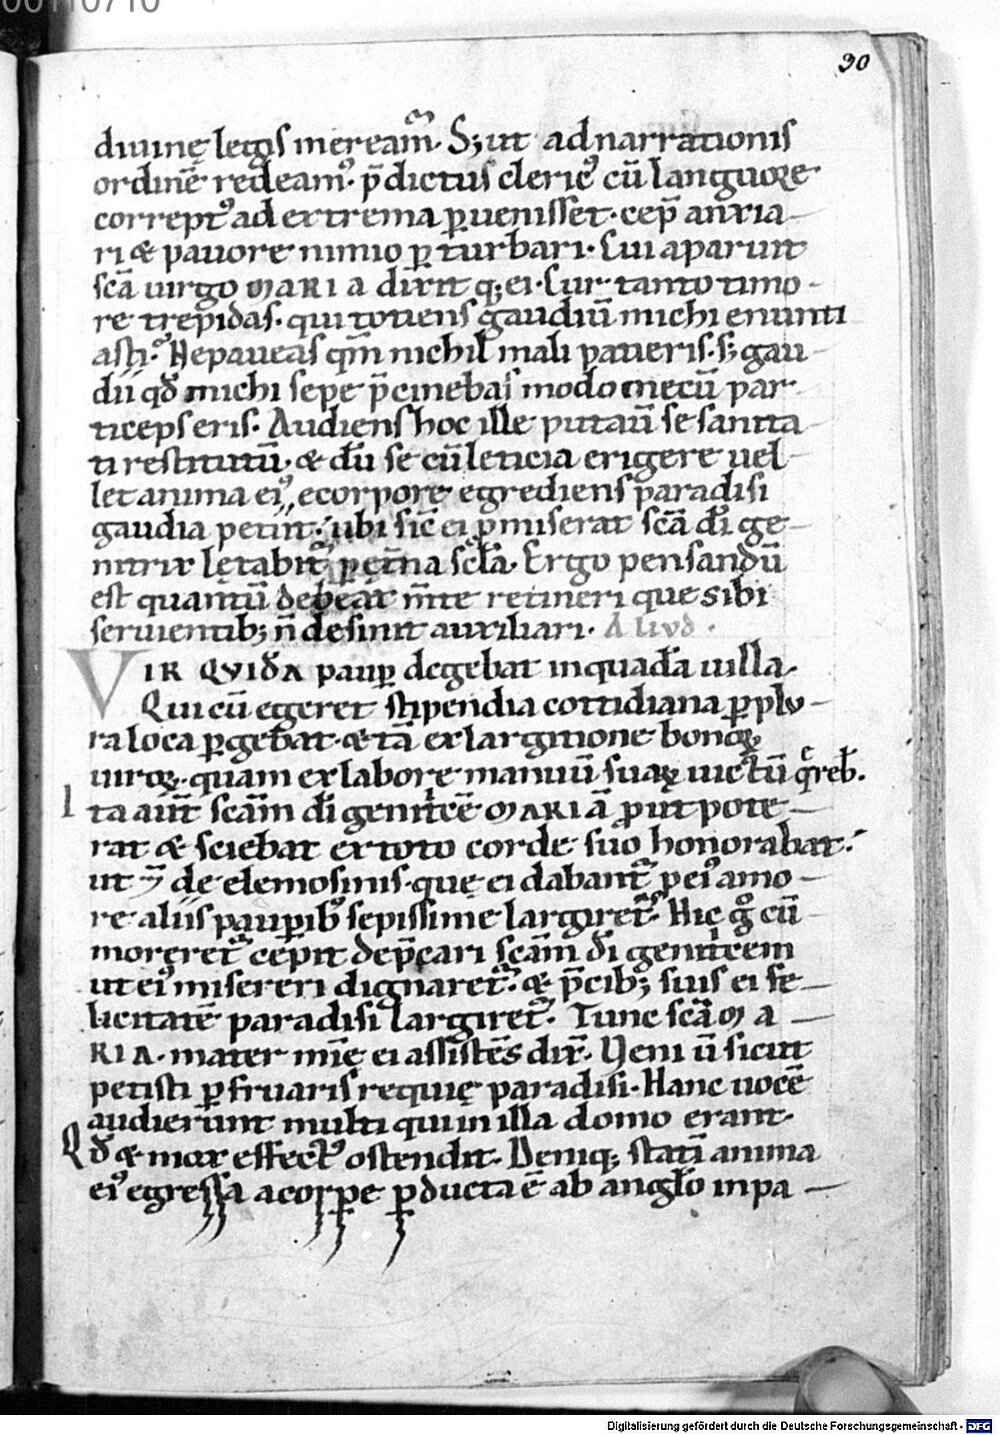 30
diuinę legis meream̃. S; ut ad narrationis
ordinẽ redeam⁹. p̃dictus cleric⁹ cũ languore
corrept⁹ ad extrema ꝑuenisset. cep̃ anxia-
ri & pauore nimio ꝑturbari. Cui aparuit
sc̃a uirgo MARIA dixit q; ei. Cur tanto timo-
re trepidas. qui totiens gaudiũ michi enunti
asti. Ne paueas qm̃ nichil mali patieris. s; gau-
dii qđ michi sepe p̃cinebas modo mecũ par-
ticeps eris. Audiens hoc ille putauı̃ se sanita-
ti restitutũ. & dũ se cũ leticia erigere uel-
let anima ei⁹ e corpore egrediens paradisi
gaudia petiit. ubi sic̃ ei ꝓmiserat sc̃a dı̃ ge-
nitrix lętabit̃ ꝑ ęt̃na scła. Ergo pensandũ
est quantũ debeat m̃te retineri que sibi
seruientib; ñ desinit auxiliari. Aliud.
VIR QVIDĀ paup̱ degebat in quadã uilla.
Qui cũ egeret stipendia cottidiana ꝑ plu-
ra loca ꝑgebat. & tã ex largitione bonoꝝ
uiroꝝ. quam ex labore manuũ suaꝝ uictũ q̃reb̃.
Ita aut̃ scãm dı̃ genitcẽ MARIÃ ꝓut pote-
rat & sciebat ex toto corde suo honorabat.
ut & de elemosinis. quę ei dabant̃ ꝑ ei⁹ amo-
re aliis pauꝑib⁹ sepissime largiret̃. Hic g̊ cũ
moreret̃ cepit dep̃cari scãm dı̃ genitcem
ut ei⁹ misereri dignaret̃. & p̃cib; suis ei fe-
licitatẽ paradisi largiret̃. Tunc scã MA-
RIA. mater mı̃ę ei assistẽs dix̃. Veni ũ sicut
petisti ꝑfruaris requię paradisi. Hanc uocẽ
audierunt multi qui in illa domo erant.
Qđ & mox effect⁹ ostendit. Deniq; statı̃ anima
ei⁹ egressa a corpe ꝑducta ẽ ab angło in pa-
Digitalisierung gefördert durch die Deutsche Forschungsgemeinschaft - DFG